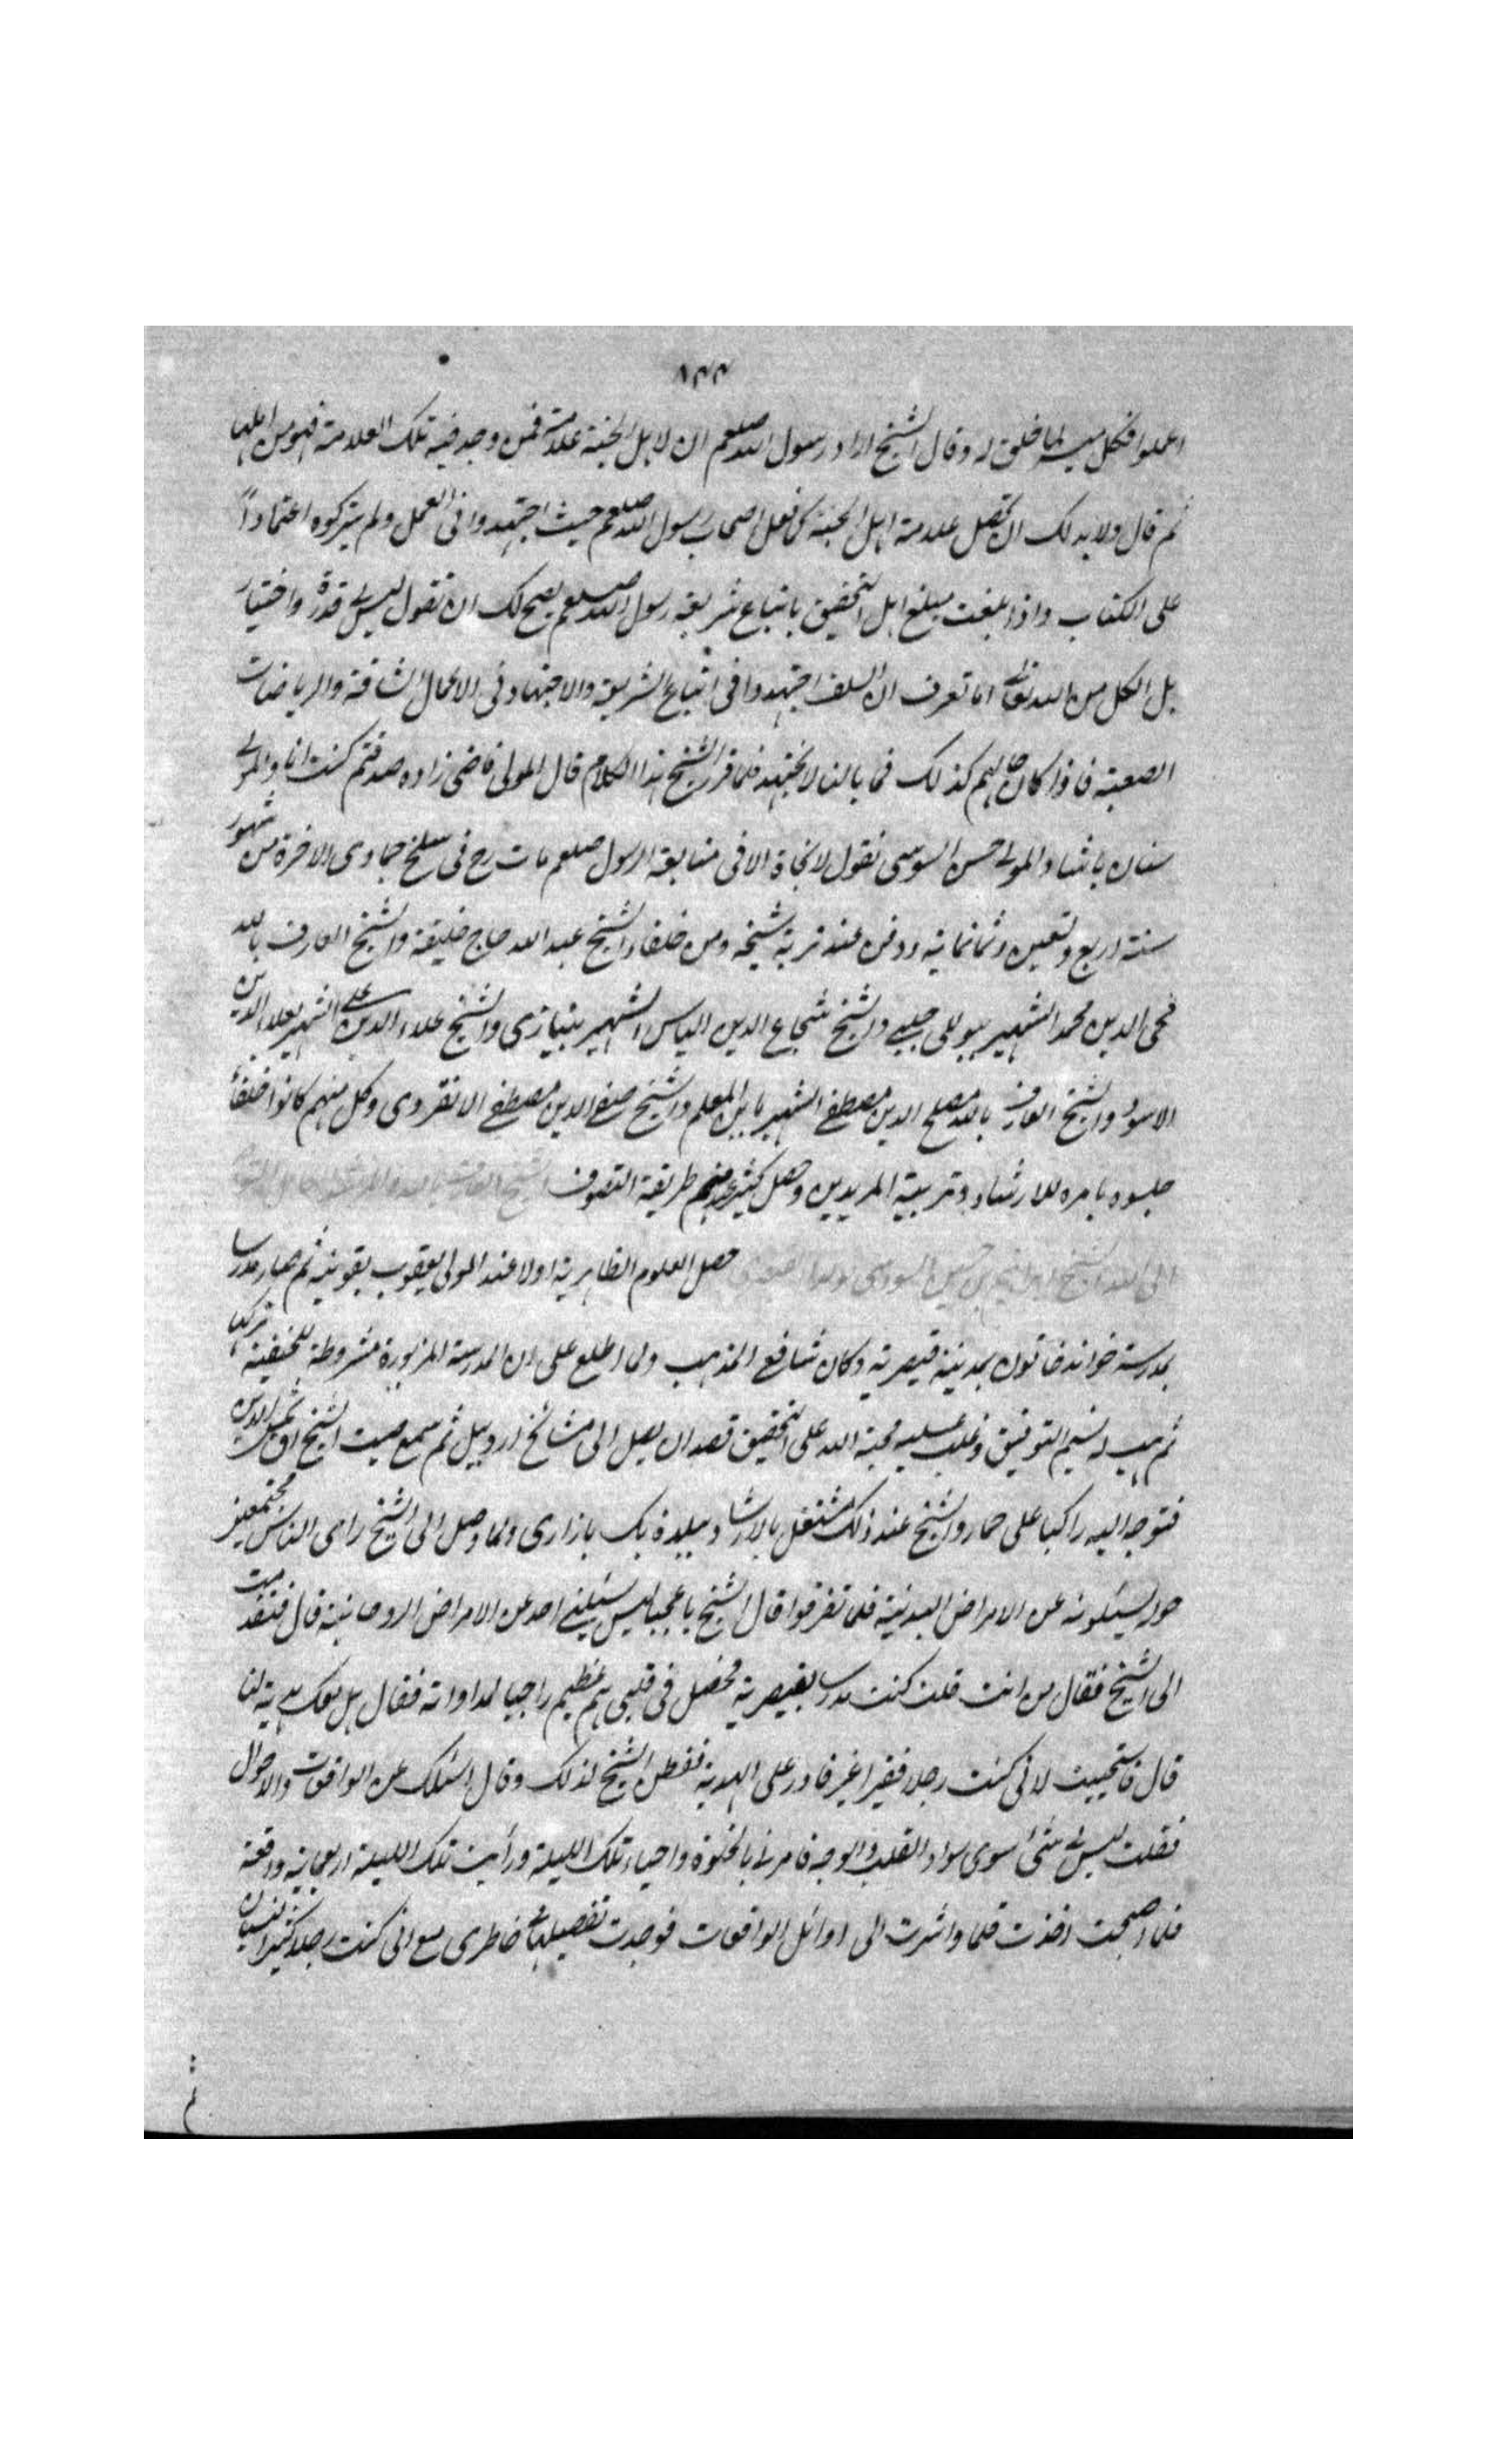 ١٣٣
اعملوا فكل ميسر لما خلق له وقال الشيخ اراد رسول الله صلعم ان لاهل الجنة علامة فمن وجد فيه تلك العلامة فهو من اهلها
ثم قال ولا بد لك ان تحصل علامة اهل الجنة كما فعل اصحاب رسول الله صلعم حيث اجتهدوا فى العمل ولم يتركوه اعتمادًا
على الكتاب واذا بلغت مبلغ اهل التحقيق باتباع شريعة رسول الله صلعم يصح لك ان تقول ليس لى قدرة واختيار
بل الكل من الله تعالى اما تعرف ان السلف اجتهدوا فى اتباع الشريعة والاجتهاد فى الاعمال الشاقة والرياضات
الصعبة فاذا كان حالهم كذلك فما بالنا لا نجتهد فلما قرر الشيخ هذا الكلام قال المولى قاضى زاده صدقتم كنت انا والمولى
سنان باشا والمولى حسن السوسى نقول لا نجاة الا فى متابعة الرسول صلعم مات رح فى سلخ جمادى الاخرة من شهور
سنة اربع وتسعين وثمانمائة ودفن عند تربة شيخه ومن خلفاء الشيخ عبد الله حاج خليفة والشيخ العارف بالله
محى الدين محمد الشهير بيوللى چلبى والشيخ شجاع الدين الياس الشهير بنيازى والشيخ علاء الدين على الشهير بعلاء الدين
الاسود والشيخ العارف بالله مصلح الدين مصطفى الشهير بابن المعلم والشيخ صفى الدين مصطفى الانقروى وكل منهم كانوا خلفاء
جلسوه بامره للارشاد وتربية المريدين وحصل كثير عندهم طريقة التصوف الشيخ العارف بالله
الى الله الشيخ ابراهيم بن حسين السوسى حصل العلوم الظاهرية اولا عند المولى يعقوب بقونية ثم صار مدرسا
بمدرسة خواند خاتون بمدينة قيصرية وكان شافعى المذهب ولما اطلع على ان المدرسة المزبورة مشروطة للحنفية تركها
ثم هب له نسيم التوفيق وغلب عليه محبة الله على التحقيق قصد ان يصل الى مشائخ اردبيل ثم سمع صيت الشيخ اق شمس الدين
فتوجه اليه راكبا على حمار والشيخ عند ذلك مشتغل بالارشاد ببلدة بك بازارى ولما وصل الى الشيخ راى الناس مجتمعين
حوله يسئلونه عن الامراض البدنية فلما تفرقوا قال الشيخ يا عجبا ليس يسئلنى احد عن الامراض الروحانية قال فتقدمت
الى الشيخ فقال من انت قلت كنت مدرسا بقيصرية فحصل فى قلبى هم عظيم راجيا لمداواته فقال هل معك هدية لنا
قال فاستحييت لانى كنت رجلا فقيرا غير قادر على الهدية ففطن الشيخ لذلك وقال اسئلك عن الواقعات والاحوال
فقلت ليس لى شئ سوى سواد القلب والوجه فامرنى بالخلوة واحياء تلك الليلة ورأيت تلك الليلة اربعمائة واقعة
فلما اصبحت اخذت قلما واشرت الى اوائل الواقعات فوجدت تفصيلها فى خاطرى مع انى كنت رجلا كثير النسيان
ثم